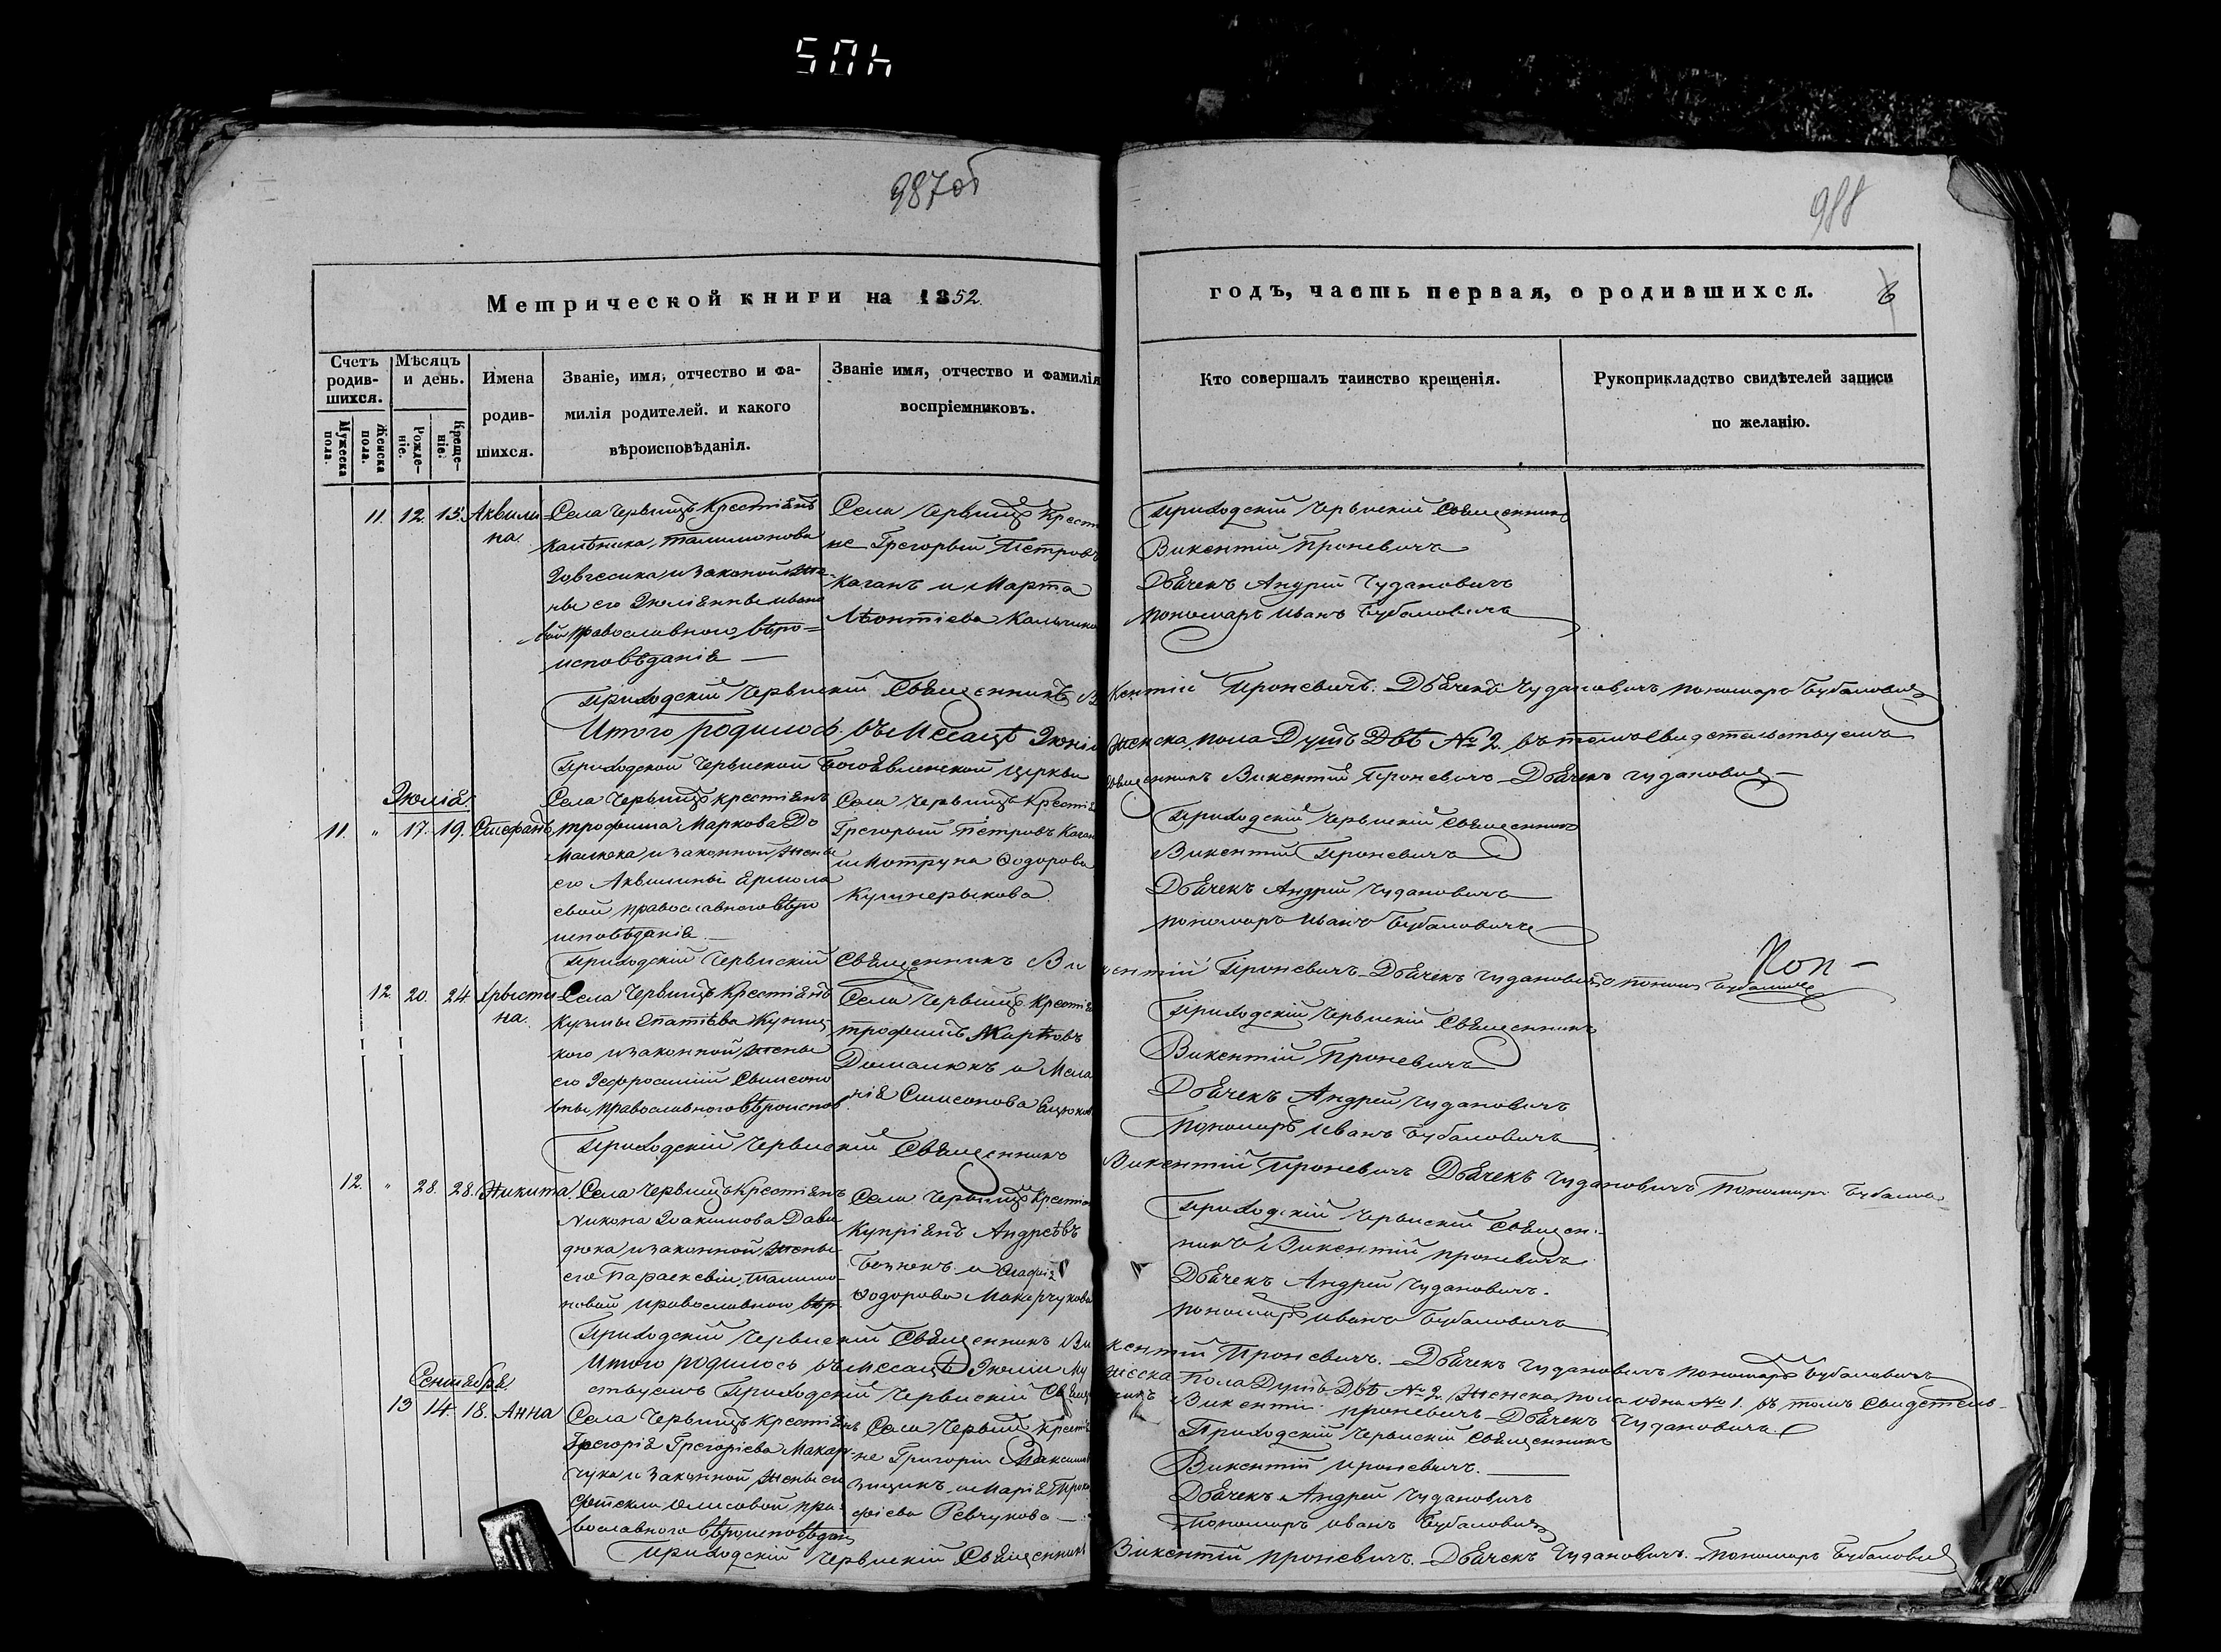 504
987об
988
Метрической книги на 1852.
годъ, часть первая, о родившихся.
6
Счетъ родив-шихся.
Мужеска пола.
Женска пола.
Мѣсяцъ и день.
Рожде-ніе.
Креще-ніе.
Имена родив-шихся.
Званіе, имя, отчество и фа-
милія родителей. и какого
вѣроисповѣданія.
Званіе имя, отчество и фамилія
воспріемниковъ.
Кто совершалъ таинство крещенія.
Рукоприкладство свидѣтелей записи
по желанію.
11. 12. 15. Аквили
на.
Села Червищъ Крестіянъ
талимонова
и законой же
ны его
вой православного вѣро=
исповѣданія —
Села Червищъ Крест
не Грегорый Петровъ
Каганъ и Марта
Лѣонтіева
Приходскій Червискій Священникъ
Викентій Проневичъ
Дьячекъ Андрій Чудановичъ
пономаръ Иванъ Бубановичъ
Приходскій Червискій Священникъ Викентій Проневичъ. Дьячекъ Чудановичъ пономаръ Бубановичъ
Итого родилось въ Месяцѣ Женска пола Душъ Двѣ № 2. въ томъ Свидетельствуемъ
Приходской Червиской Богоявленской церкви Священникъ Викентій Проневичъ Дьячекъ Чудановичъ —
Іюлія.
11. " 17. 19. Стефанъ
Села Червищъ крестіянъ
трофима Маркова До
малюка, и законной жены
его Аквилины Ермола
евой, православного вѣро
исповѣданія
Села Червищъ Крестія
Грегорый Петровъ Каган
и Мотруна Ѳодорова
Приходскій Червискій Священникъ
Викентій Проневичъ
Дьячекъ Андрій Чудановичъ
пономаръ Иванъ Бубановичъ
Приходскій Червискій Священникъ Викентій Проневичъ Дьячекъ Чудановичъ
Коп —
12. 20. 24 Хрысти
на.
Села Червищъ Крестіянъ
Кузмы
кого и законной жены
его
православного вѣроиспов
Села Червищъ Крестія
трофимъ Марковъ
Домалюкъ и Мела
нія Симонова
Приходскій Червискій Священникъ
Викентій Проневичъ
Дьячекъ Андрей Чудановичъ
Пономаръ Иванъ Бубановичъ
Приходскій Червискій Священникъ Викентій Проневичъ Дьячекъ Чудановичъ Пономаръ
12. " 28. 28. Никита.
Села Червищъ Крестіянъ
Никона Іоакимова Дави
дюка, и законной жены
его Параскевіи, талимо-
новой православного вѣр.
Села Червищъ Крестія
Купріянъ Андреѣвъ
и
Ѳодорова Макарчукова
Приходскій Червискій Священ-
никъ Викентій Проневичъ
Дьячекъ Андрій Чудановичъ.
пономаръ Иванъ Бубановичъ
Приходскій Червискій Священникъ Викентій Проневичъ. Дьячекъ Чудановичъ пономаръ Бубановичъ
Итого родилось въ Месацѣ Іюліи Мужеска пола Душъ Двѣ № 2. Женска пола одна № 1. въ томъ Свидетель-
ствуемъ Приходскій Червискій Священникъ Викентій Проневичъ Дьячекъ Чудановичъ.
Сентября.
13 14. 18. Анна
Села Червищъ Крестіянъ
Грегорія Грегоріева Макар
чука и законной жены его
пра-
вославного вѣроисповѣдан
Села Червищъ Крестія
не Григорій Максимо
и Марія Проко
фіева Ревчукова —
Приходскій Червискій Священникъ
Викентій Проневичъ.
Дьячекъ Андрій Чудановичъ
Пономаръ Иванъ Бубановичъ
Приходскій Червискій Священникъ Викентій Проневичъ. Дьячекъ Чудановичъ. Пономаръ Бубановичъ